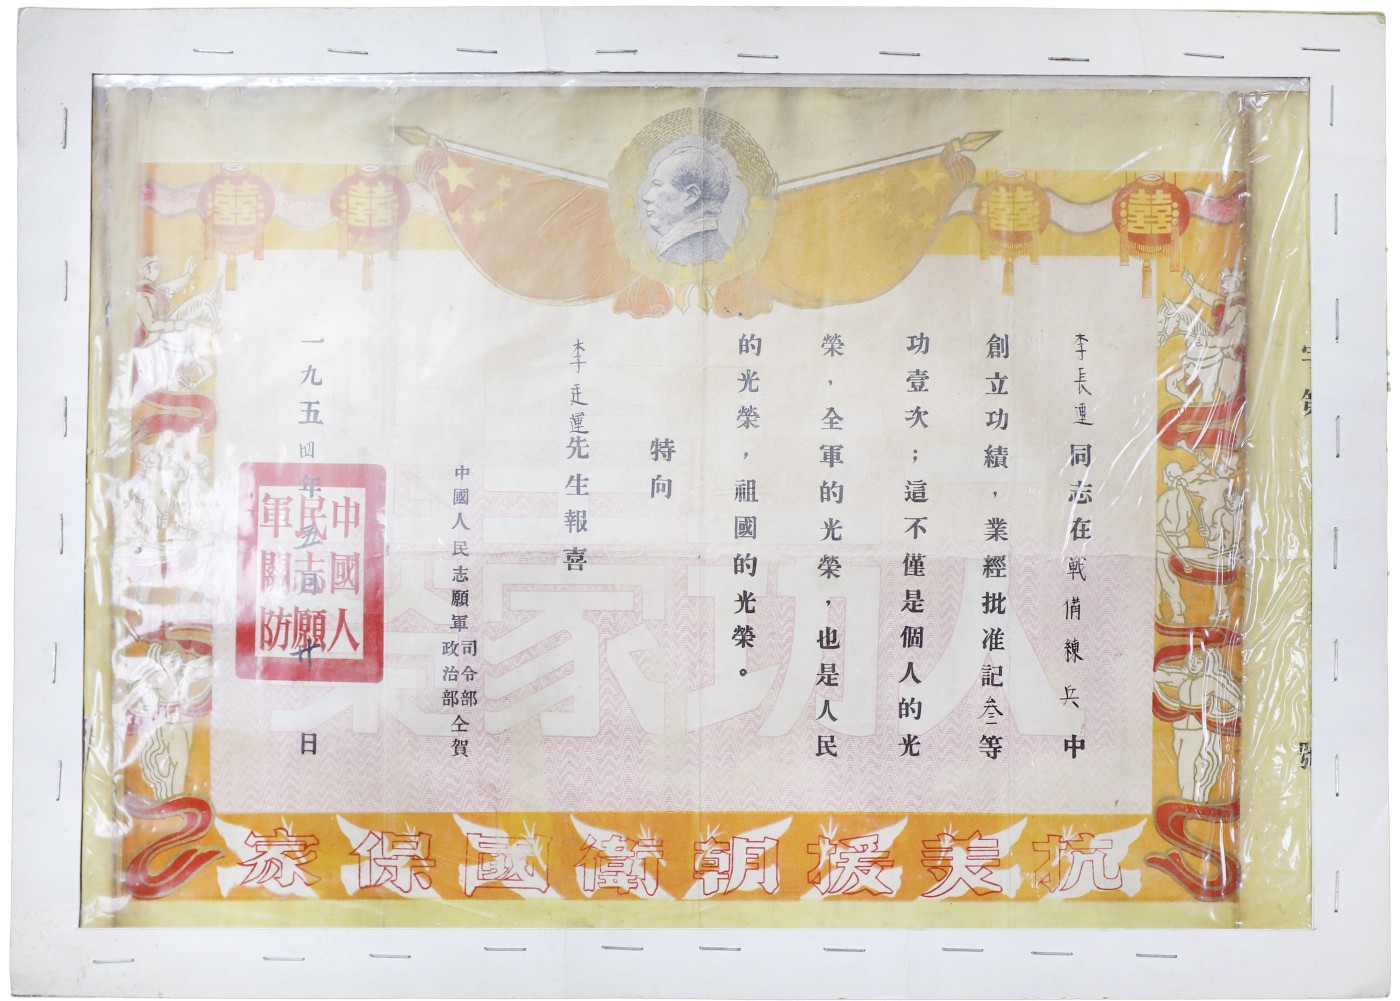 字第
號
李長運同志在戰備練兵中
創立功績，業經批准記叁等
功壹次；這不僅是個人的光
榮，全軍的光榮，也是人民
的光榮，祖國的光榮。
特向
李廷運先生報喜
中國人民志願軍
司令部
政治部
仝賀
一九五四年五月廿日
中國人
民志願
軍關防
人功家榮
囍 囍 囍 囍
抗美援朝衛國保家